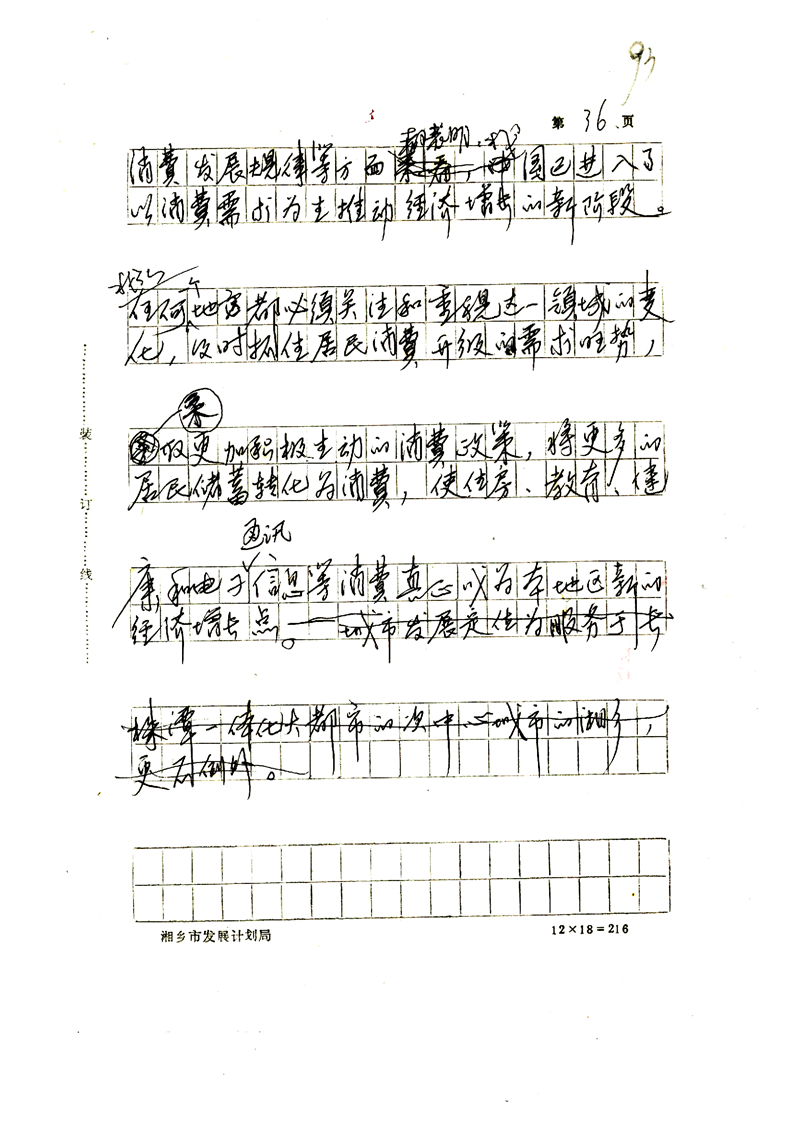 93
第 36 页
都表明,我
消费发展规律等方面来看,中国已进入了
以消费需求为主推动经济增长的新阶段。
个
任何地区都必须关注和重视这一领域的变
化,及时抓住居民消费升级的需求旺势,
采
取更加积极主动的消费政策,将更多的
居民储蓄转化为消费,使住房、教育、健
通讯
康和电子信息等消费真正成为本地区新的
经济增长点。城市发展定位为服务于长
株潭一体化大都市的次中心城市的湘乡,
更不例外。
装
订
线
湘乡市发展计划局
12×18=216